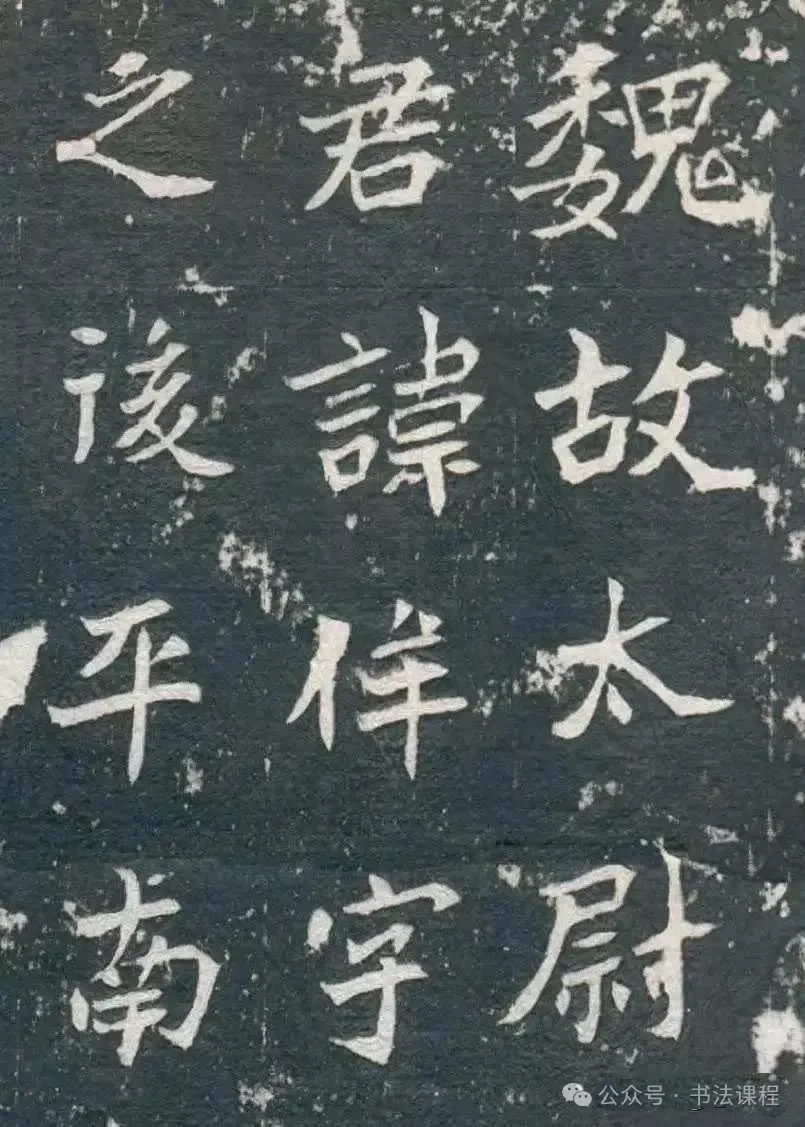 魏故太尉
君諱佯字
之後平南
公众号·书法课程